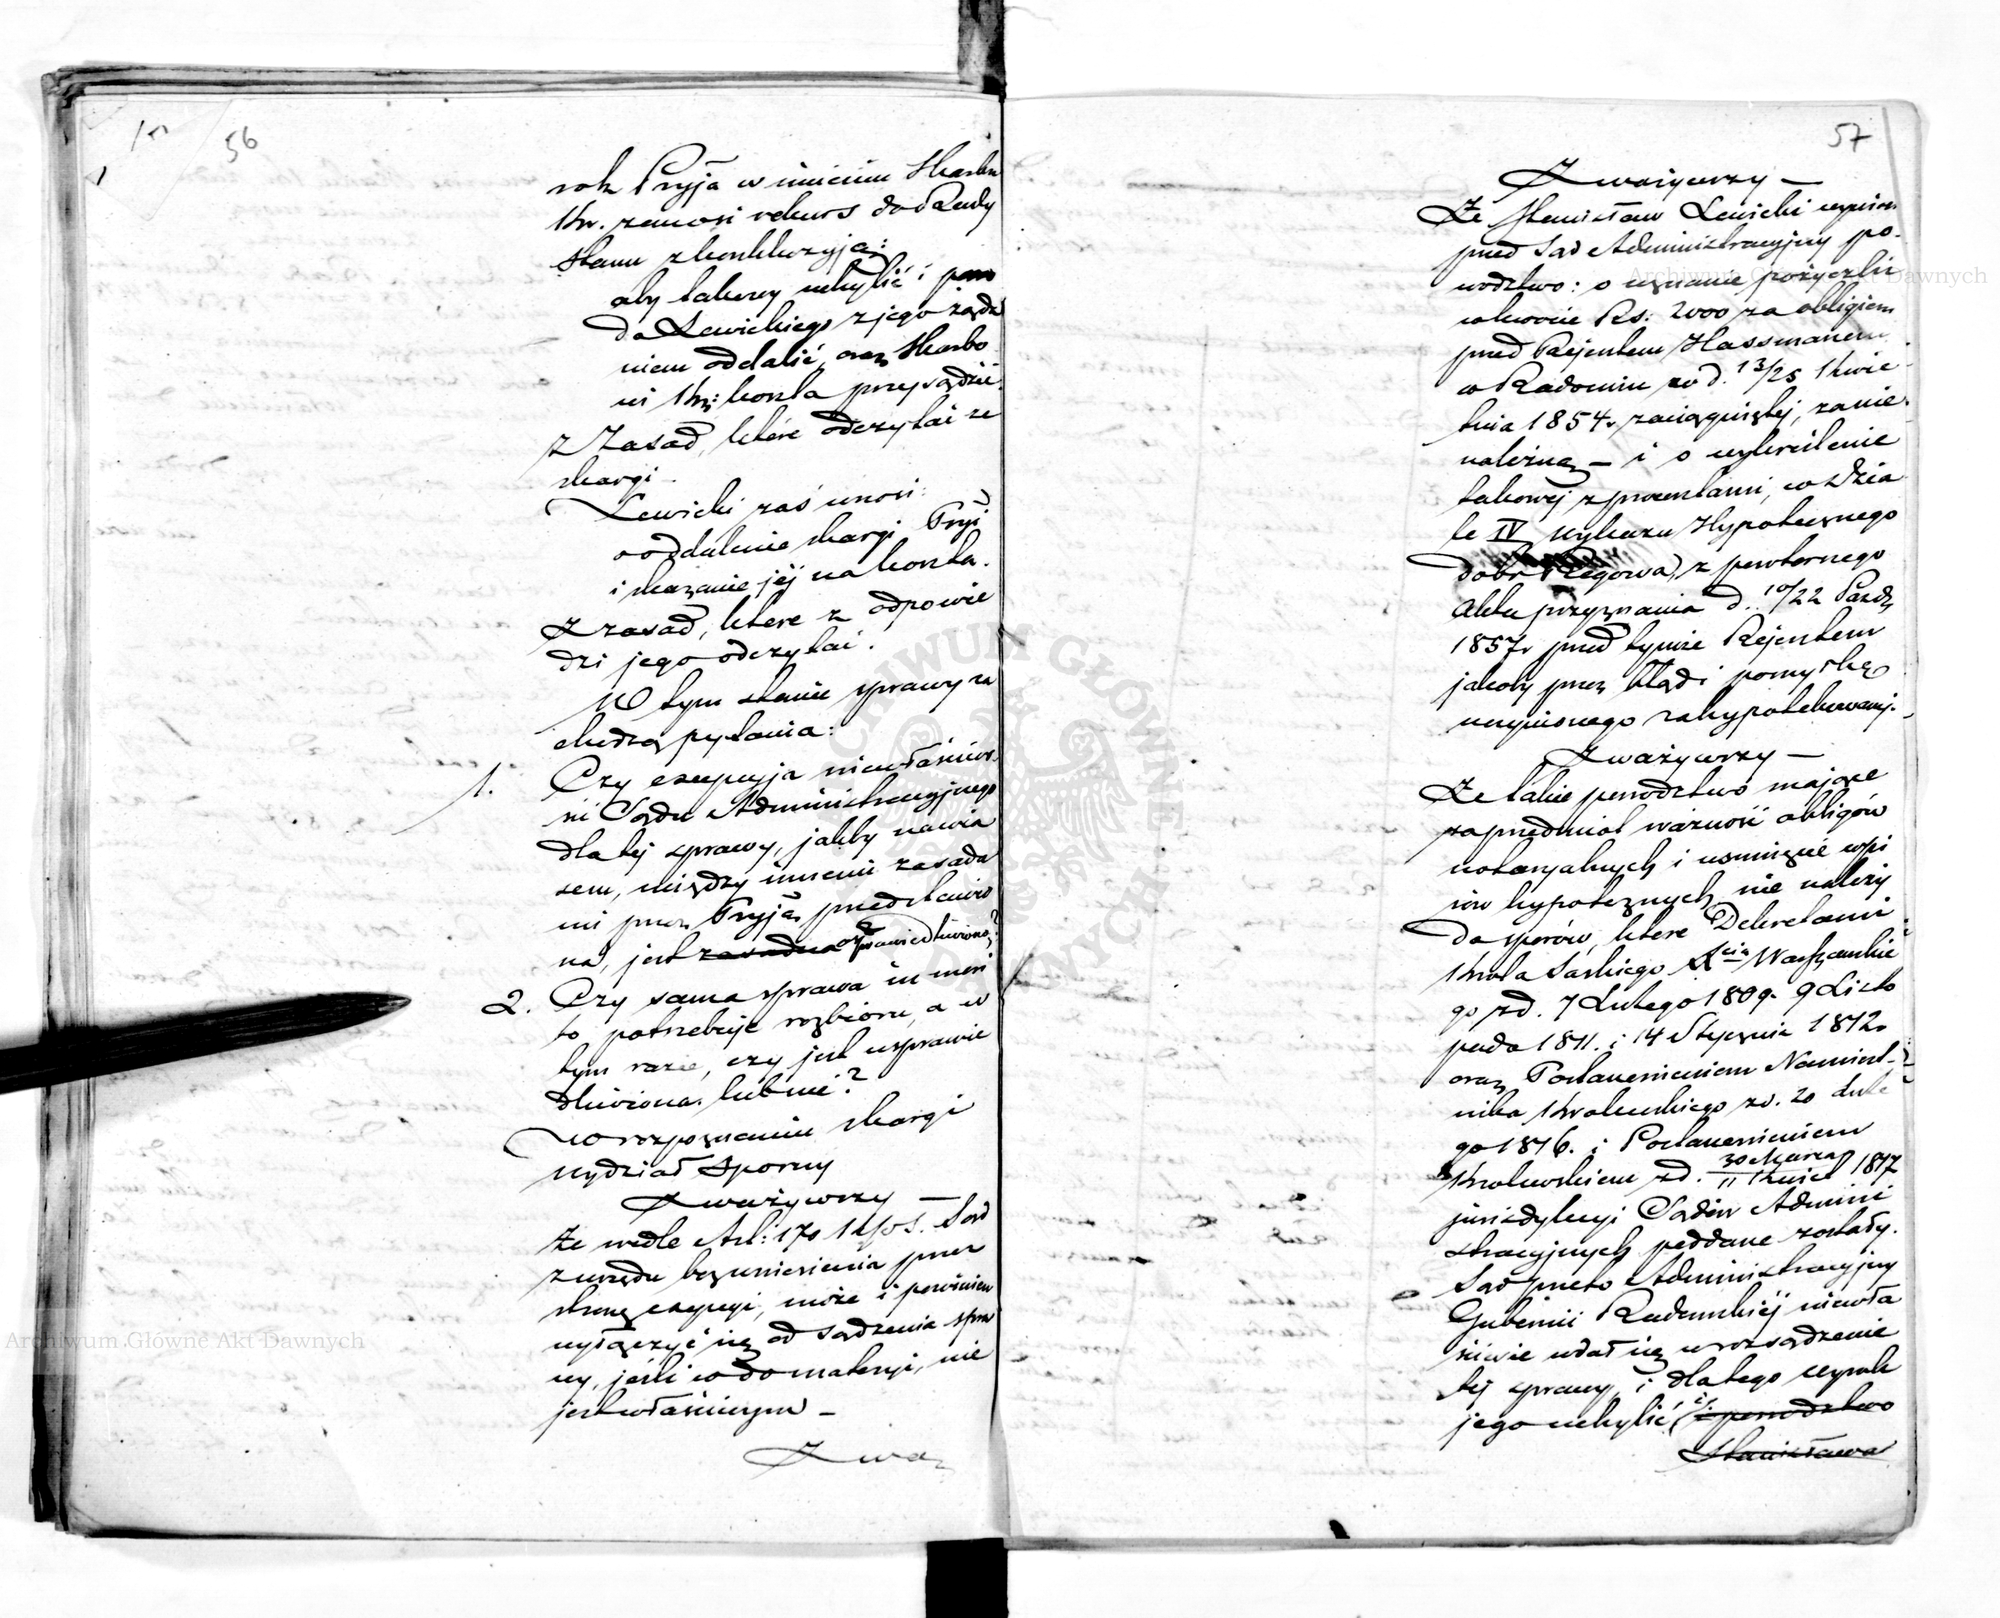 56
rok Pryja w imieniu Skarbu
Kr. zanosi rekurs do Rady
Stanu z konkluzyją:
aby takowy uchylić i pow
da Lewickiego z jego żąda
niem oddalić, oraz Skarbo
wi Kr: koszta przysądzić.
z Zasad, które odczytać ze
skargi
Lewicki zaś wnosi:
o oddalenie skargi Pryi
i skazanie jéj na koszta.
z zasad, które z odpowie
dzi jego odczytać.
W tym stanie sprawy za
chodzą pytania:
1. Czy excepcyja niewłaściwo
ści Sądu Administracyjnego
dla téj sprawy, jakby nawia
sem, między innemi zasada
mi przez Pryją przedstawio
na, jest zasadna usprawiedliwioną?
2. Czy sama sprawa in meri
to potrzebuje rozbioru, a w
tym razie, czy jest usprawie
dliwiona lub nie?
Po rozpoznaniu skargi
Wydział Sporny
Zważywszy —
Że wedle Art: 170 KPS. Sąd
z urzędu bez wniesienia przez
stronę excepcyi, może i powinien
wyłączyć się od sądzenia spra
wy, jeśli co do materyi, nie
jest właściwym —
Zwa
57
Zważywszy —
Że Stanisław Lewicki wyniósł
przed Sąd Administracyjny po-
wództwo: o uznanie pożyczki
w kwocie Rs: 2000 za obligiem
przed Rejentem Hassmanem
w Radomiu w d. 13/25 Kwie
tnia 1854 r. zaciągniętej, za nie
należną — i o wykreślenie
takowéj z procentami, w Dzia
le IV wykazu Hypotecznego
dobr Regowa, z powtornego
Aktu przyznania d. 10/22 Paźdz
1857 r. przed tymże Rejentem
jakoby przez błąd i pomyłkę
uczynionego zahypotekowanéj.
Zważywszy —
Że takie powództwo mające
za przedmiot ważność obligów
notaryalnych i usunięcie wpi
sów hypotecznych, nie należy
do sporów, które Dekretami
Króla Saskiego Xcia Warszawskie
go z d. 7 Lutego 1809. 9 Listo
pada 1811. i 14 Stycznia 1812 r.
oraz Postanowieniem Namiest-
nika Królewskiego z d. 20 Lute
go 1816. i Postanowieniem
Królewskiem z d. 30 Marca/11 Kwiet 1817
jurisdykcyi Sądów Admini
stracyjnych poddane zostały.
Sąd przeto Administracyjny
Gubernii Radomskiéj niewła
ściwie wdał się w rozsądzenie
téj sprawy, i dlatego wyrok
jego uchylić i powództwo
Stanisława
Archiwum Główne Akt Dawnych
Archiwum Główne Akt Dawnych
ARCHIWUM GŁÓWNE AKT DAWNYCH